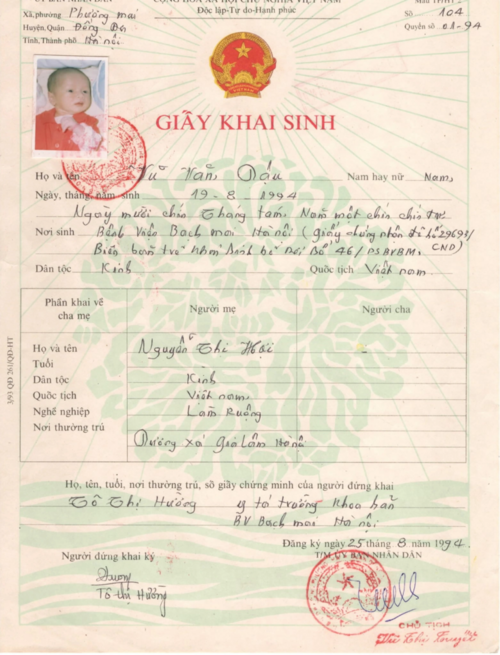 Xã, phường Phương mai
Huyện, Quận Đống Đa
Tỉnh, Thành phố Hà nội
CỘNG HÒA XÃ HỘI CHỦ NGHĨA VIỆT NAM
Độc lập-Tự do-Hạnh phúc
Số 104
Quyển số 01-94
GIẤY KHAI SINH
Họ và tên Vũ Văn Dậu Nam hay nữ Nam
Ngày, tháng, năm sinh 19-8-1994
Ngày mười chín tháng tám Năm một chín chín tư
Nơi sinh Bệnh Viện Bạch mai Hà nội (giấy chứng nhận số 29693/
Biên bản trẻ bỏ số 46/ CND)
Dân tộc Kinh Quốc tịch Việt nam
Phần khai về cha mẹ
Người mẹ
Người cha
Họ và tên Nguyễn Thị Hợi -
Tuổi
Dân tộc Kinh
Quốc tịch Việt nam
Nghề nghiệp Làm Ruộng
Nơi thường trú Dương xá Gia Lâm Hà nội
3/93 QĐ 261/QĐ-HT
Họ, tên, tuổi, nơi thường trú, số giấy chứng minh của người đứng khai
Tô Thị Hường y tá trưởng Khoa
BV Bạch mai Hà nội
Đăng ký ngày 25 tháng 8 năm 1994
Người đứng khai ký
T/M ỦY BAN NHÂN DÂN
Hương
Tô thị Hường
CHỦ TỊCH